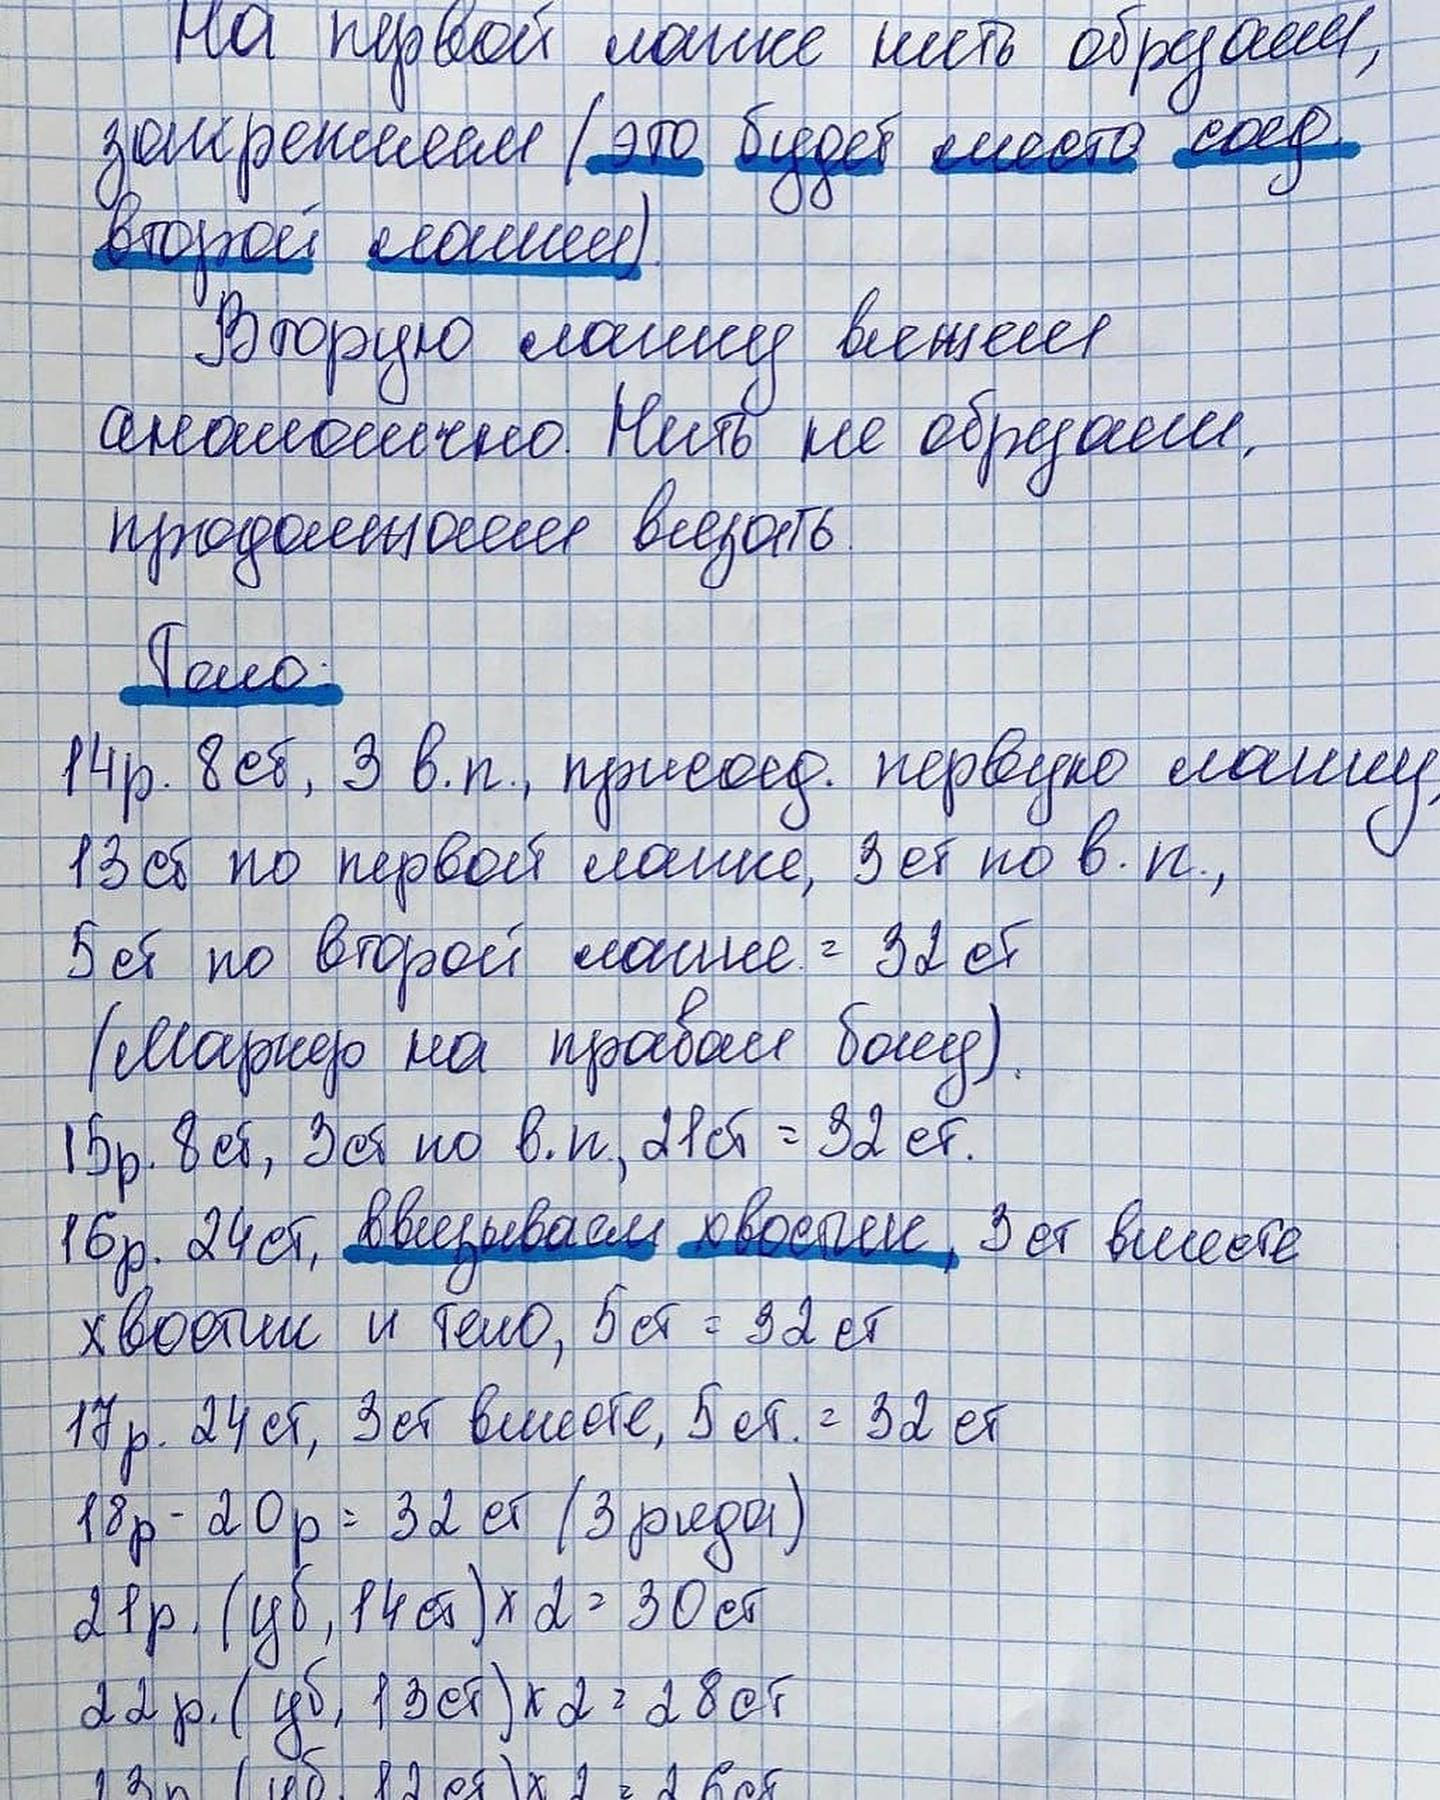 На первой лапке нить обрезаем,
закрепляем (это будет место соед.
второй лапки).
Вторую лапку вяжем
аналогично. Нить не обрезаем,
продолжаем вязать.
Тело:
14р. 8сб, 3 в.п., присоед. первую лапку,
13сб по первой лапке, 3сб по в.п.,
5сб по второй лапке = 32сб
(Маркер на правом боку).
15р. 8сб, 3сб по в.п., 21сб = 32сб.
16р. 24сб, ввязываем хвостик, 3сб вместе
хвостик и тело, 5сб = 32сб
17р. 24сб, 3сб вместе, 5сб. = 32сб
18р - 20р = 32сб (3 ряда)
21р. (уб, 14сб)х2 = 30сб
22р. (уб, 13сб)х2 = 28сб
23р. (уб, 12сб)х2 = 26сб